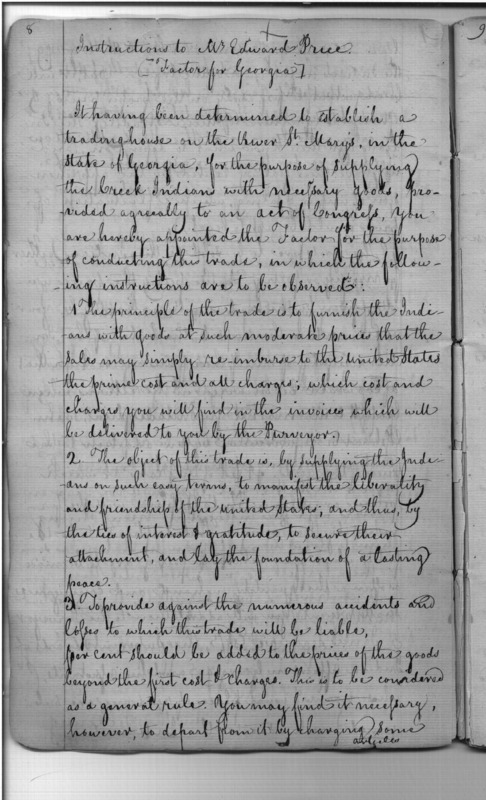 8
Instructions to Mr Edward Price
[Factor for Georgia]
It having been determined to establish a
tradinghouse on the River St. Marys, in the
state of Georgia, for the purpose of supplying
the Creek Indians with necessary goods, pro-
vided agreeably to an act of Congress, you
are hereby appointed the Factor for the purpose
of conducting the trade, in which the follow-
-ing instructions are to be observed:
1 The principle of the trade is to furnish the Indi-
ans with goods at such moderate prices that the
sales may simply re-imburse to the United States
the prime cost and all charges; which cost and
charges you will find in the invoices which will
be delivered to you by the Purveyor.
2 The object of this trade is, by supplying the Indi-
ans on such easy terms, to manifest the liberality
and friendship of the united States; and thus, by
the ties of interest & gratitude, to secure their
attachment, and lay the foundation of a lasting
peace.
3. To provide against the numerous accidents and
losses to which this trade will be liable,
per cent should be added to the prices of the goods
beyond the first cost & charges. This is to be considered
as a general rule. You may find it necessary,
however, to depart from it by charging some
articles
9